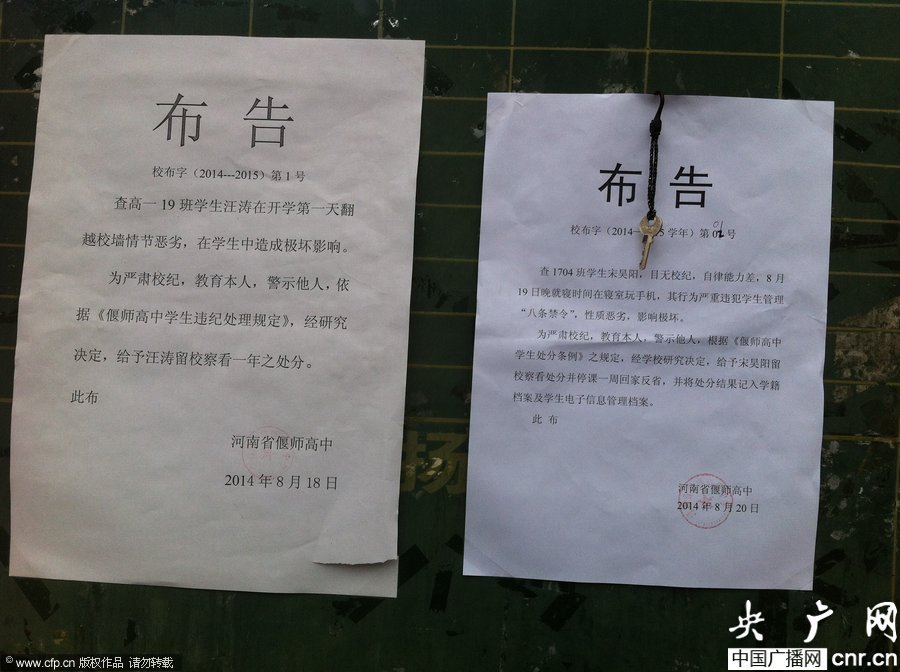 布 告
校布字（2014---2015）第 1 号
查高一 19 班学生汪涛在开学第一天翻
越校墙情节恶劣，在学生中造成极坏影响。
为严肃校纪，教育本人，警示他人，依
据《偃师高中学生违纪处理规定》，经研究
决定，给予汪涛留校察看一年之处分。
此布
河南省偃师高中
2014 年 8 月 18 日
布 告
校布字（2014 5 学年）第 号
查 1704 班学生宋昊阳，目无校纪，自律能力差，8 月
19 日晚就寝时间在寝室玩手机，其行为严重违犯学生管理
“八条禁令”，性质恶劣，影响极坏。
为严肃校纪，教育本人，警示他人，根据《偃师高中
学生处分条例》之规定，经学校研究决定，给予宋昊阳留
校察看处分并停课一周回家反省，并将处分结果记入学籍
档案及学生电子信息管理档案。
此 布
河南省偃师高中
2014 年 8 月 20 日
扬
www.cfp.cn 版权作品 请勿转载
央广网
中国广播网 cnr.cn